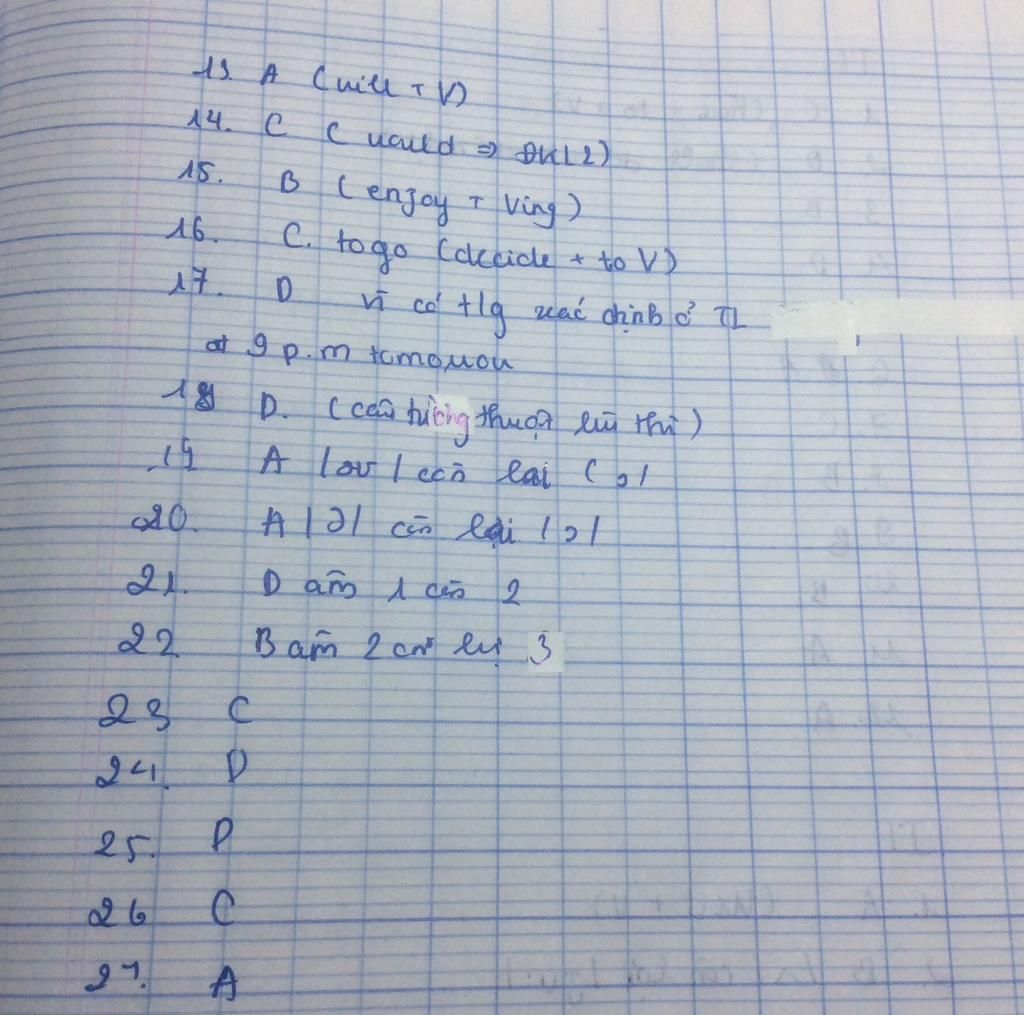 13. A (will + V)
14. C (would => ĐK L2)
15. B (enjoy + Ving)
16. C. to go (decide + to V)
17. D vì có tlg xác định ở TL
at 9 p.m tomorrow
18 D. (câu tường thuật lùi thì)
19 A /əʊ/ còn lại /ɔ/
20. A /ə/ còn lại /ɔ/
21. D âm 1 còn 2
22. B âm 2 còn lại 3
23 C
24. D
25. D
26 C
27. A